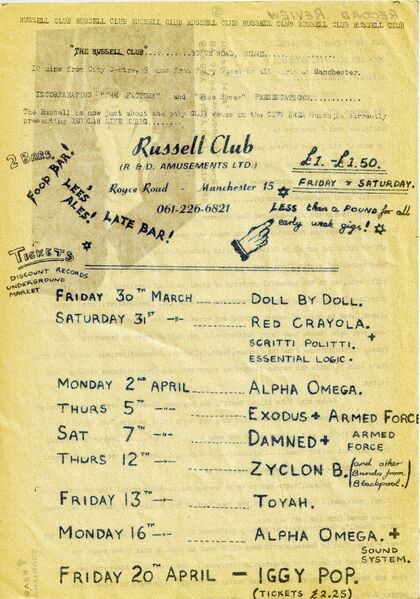 RUSSELL CLUB RUSSELL CLUB RUSSELL CLUB RUSSELL CLUB RUSSELL CLUB RUSSELL CLUB RUSSELL CLUB
RECORD REVIEW
"THE RUSSELL CLUB"..........ROYCE ROAD, HULME.
10 mins from City Centre, Manchester.
INCORPARATING "THE FACTORY" and PRESENTATIONS
The Russell is now just about the only CLUB venue in the CITY AREA currently
presenting REGULAR LIVE GIGS.
Russell Club
(R & D. AMUSEMENTS LTD.)
Royce Road - Manchester 15
061-226-6821
2 BARS.
FOOD BAR!
LEES' ALES!
LATE BAR!
£1. - £1.50.
FRIDAY & SATURDAY.
LESS than a POUND for all
early week gigs!
TICKETS
DISCOUNT RECORDS
UNDERGROUND
MARKET
FRIDAY 30TH MARCH ........ DOLL BY DOLL.
SATURDAY 31ST -"- ........ RED CRAYOLA. +
SCRITTI POLITTI.
ESSENTIAL LOGIC.
MONDAY 2ND APRIL ........ ALPHA OMEGA.
THURS 5TH -"- ........ EXODUS + ARMED FORCE
SAT 7TH -"- ........ DAMNED + ARMED FORCE
THURS 12TH -"- ........ ZYCLON B. (and other Bands from Blackpool.)
FRIDAY 13TH -"- ........ TOYAH.
MONDAY 16TH -"- ........ ALPHA OMEGA. +
SOUND SYSTEM.
FRIDAY 20TH APRIL - IGGY POP.
(TICKETS £2.25)